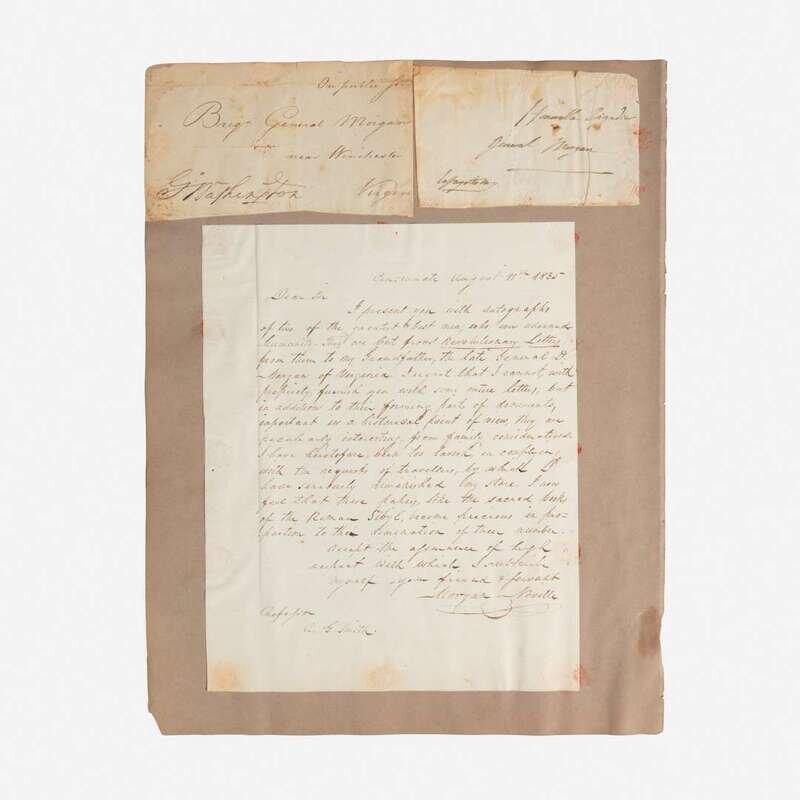 On public Ser
Brigr General Morgan
near Winchester
Go: Washington Virgini
Honorable Brigadier
General Morgan
Lafayette
Cincinnati August 11th 1835
Dear Sir
I present you with autographs
of two of the greatest & best men, who ever adorned
humanity. They are cut from Revolutionary Letters
from them to my Grandfather, the late General D.
Morgan of Virginia. I regret that I cannot with
propriety furnish you with some entire letters, but
in addition to their forming part of documents,
important in a historical point of view, they are
peculiarly interesting, from family considerations.
I have heretofore, been too lavish in complying
with the requests of travellers, by which I
have seriously diminished my store. I now
feel that these papers, like the sacred books
of the Roman Sibyl, become precious in pro-
portion to the diminution of their number.
Accept the assurance of high
respect with which I subscribe
myself your friend & servant
Morgan Neville
Professor
G. Smith.